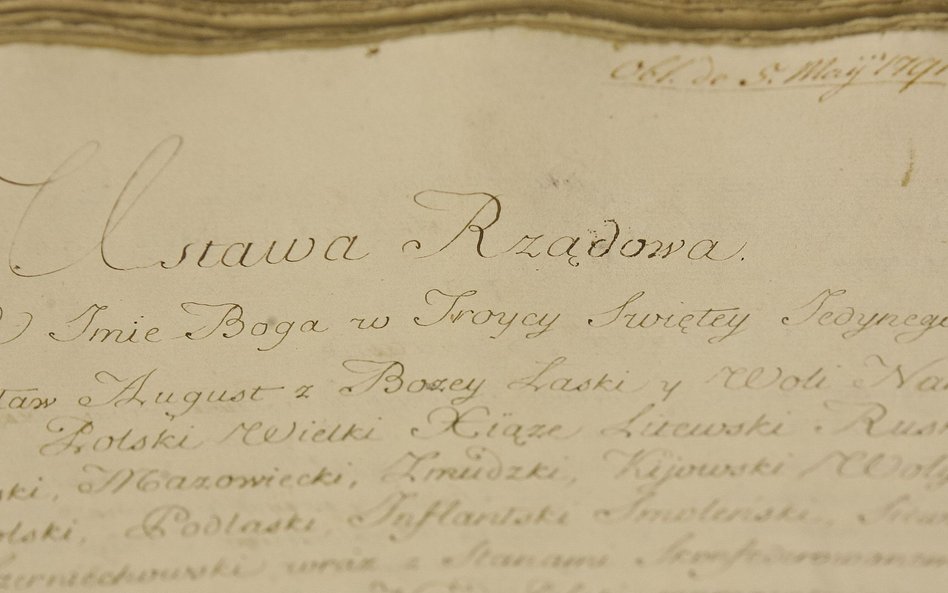 Obl. de 5. Maÿ 1791
Ustawa Rządowa.
W Imie Boga w Troycy Swiętey Jedynego
taw August z Bozey Łaski y Woli Na
Polski Wielki Xiąze Litewski Rusk
ski, Mazowiecki, Zmudzki, Kijowski Woły
olski, Podlaski Inflantski Smolenski,
Czerniechowski wraz z Stanami Skonfederowanemi